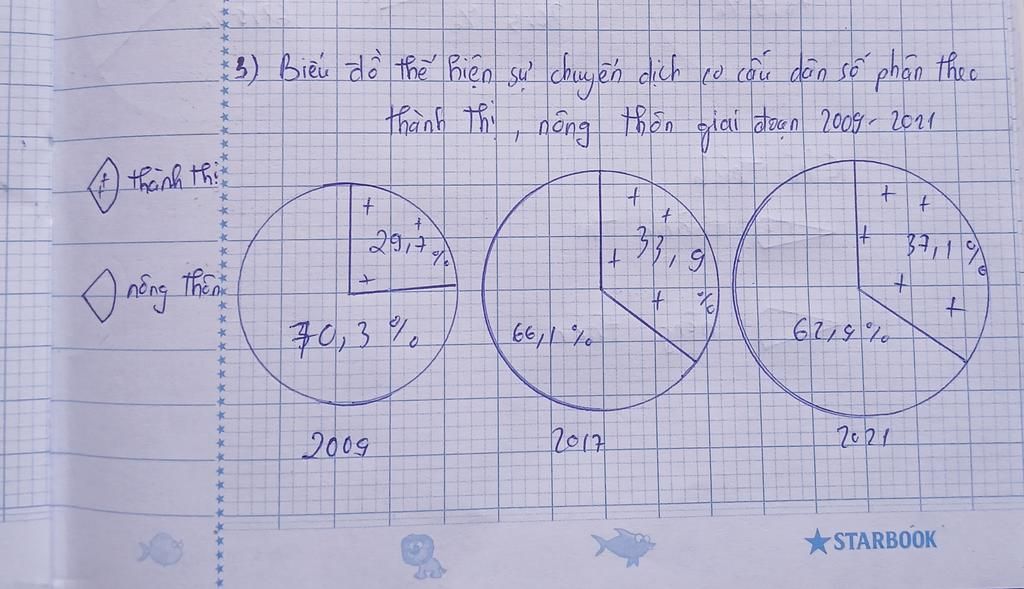 3) Biểu đồ thể hiện sự chuyển dịch cơ cấu dân số phân theo
thành thị, nông thôn giai đoạn 2009-2021
+ thành thị
nông thôn
+ + 29,7% +
70,3%
2009
+ + + 33,9 % +
66,1%
2017
+ + + 37,1% + +
62,9%
2021
STARBOOK